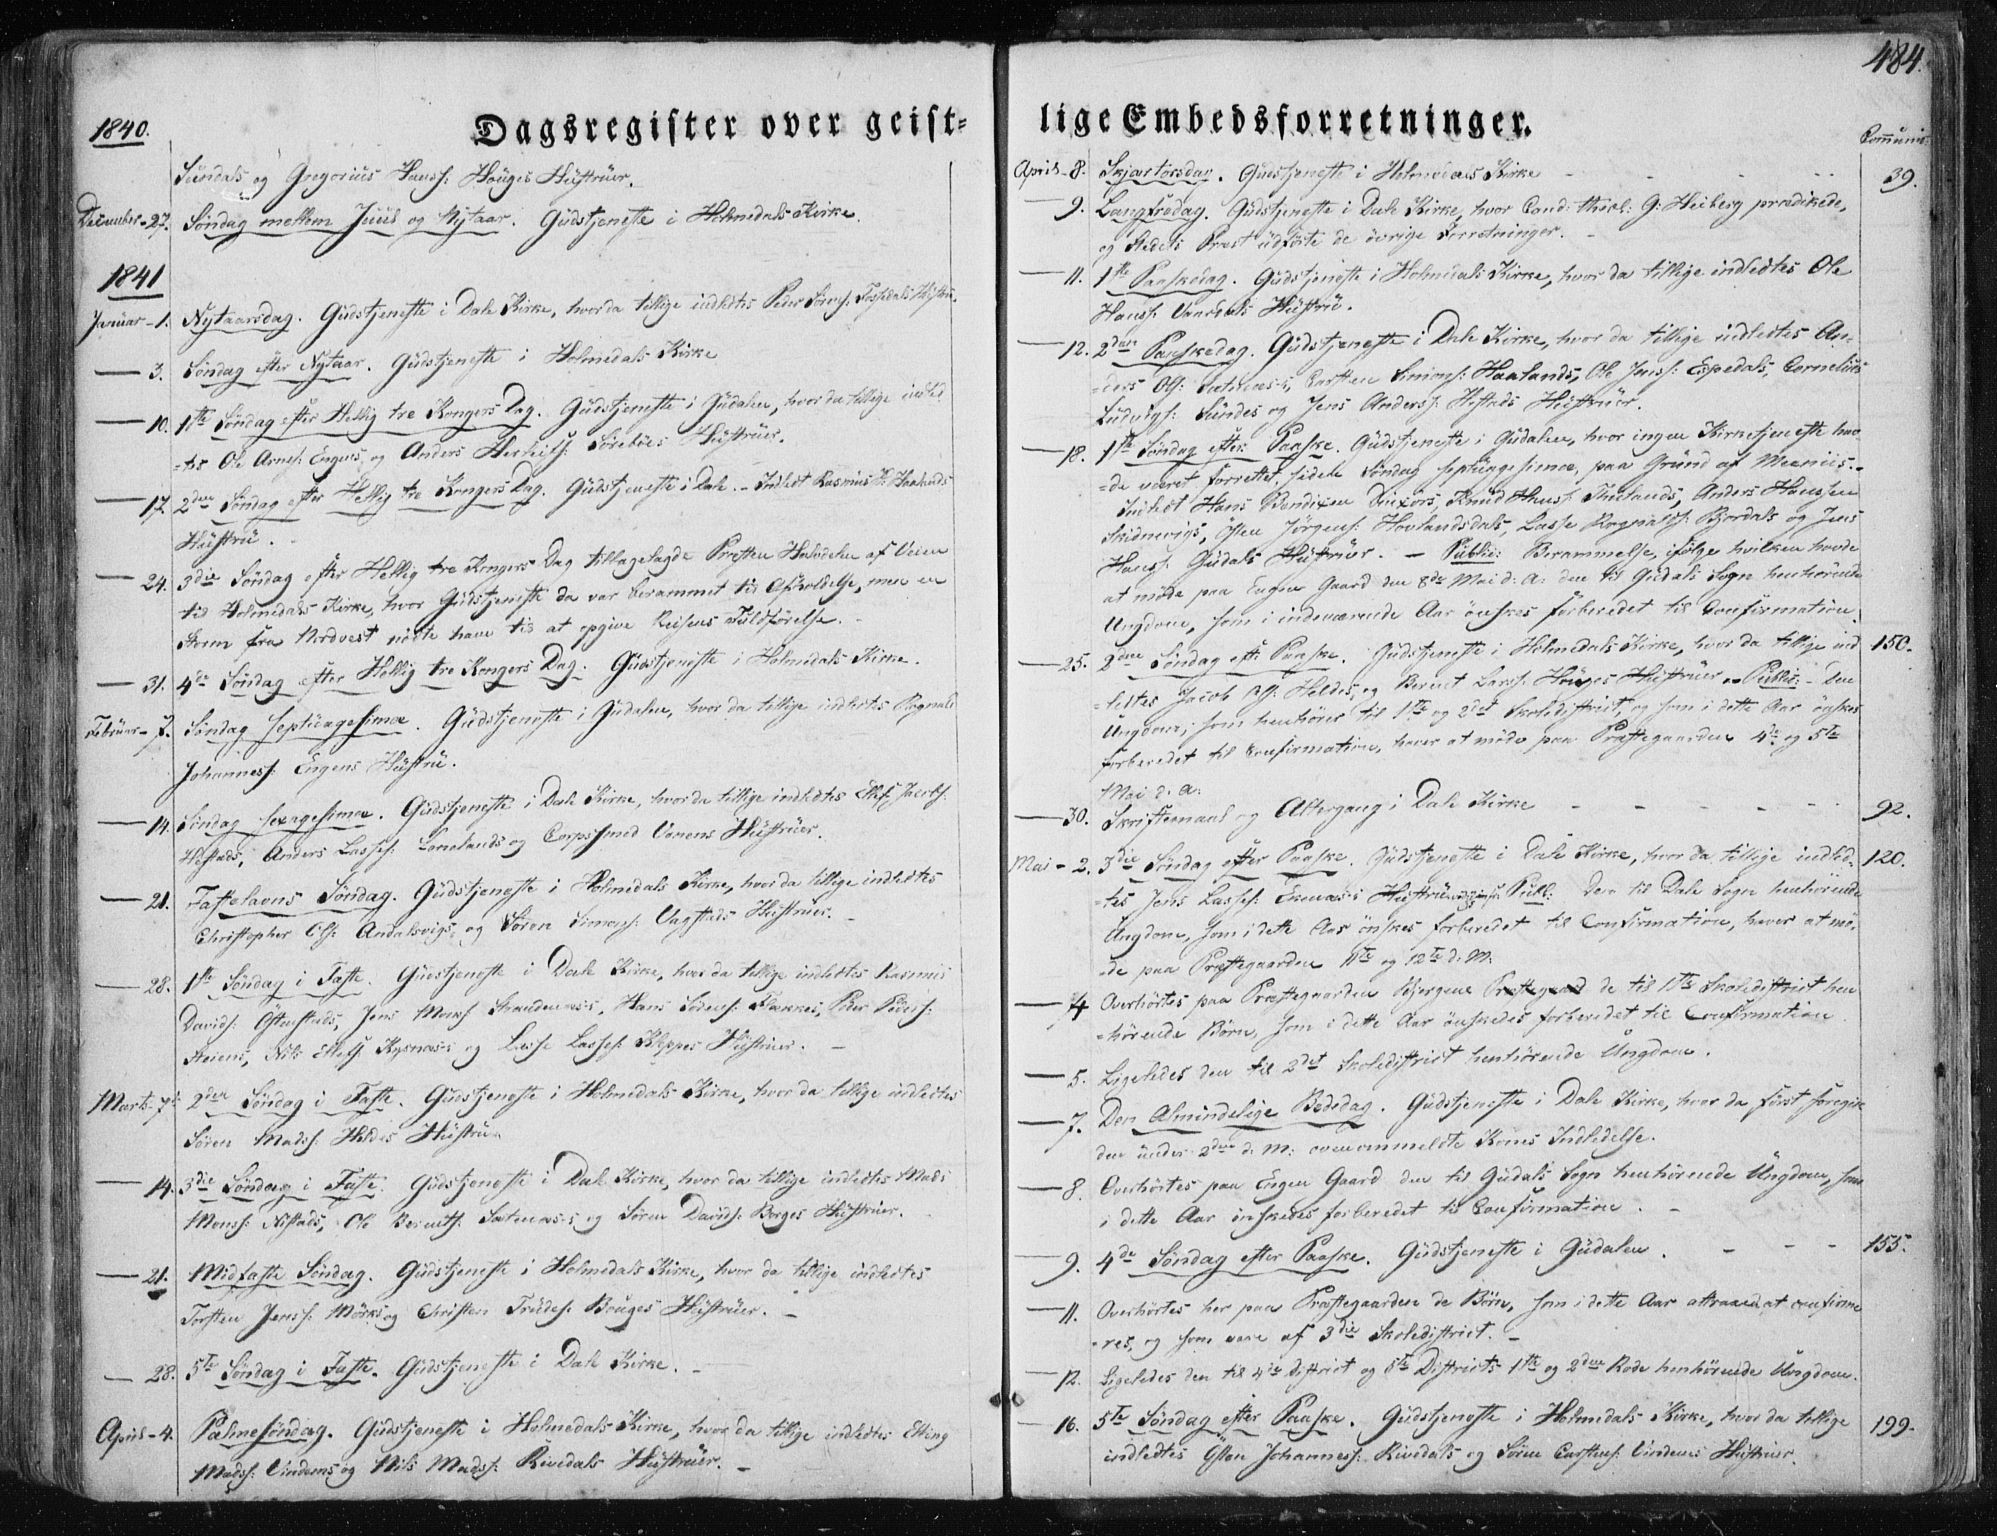 1840.
Dagsregister over geist-
Sundals og Gregorius Hanss: Houges Hustruer.
December - 27. Søndag mellem Juul og Nytaar. Gudstjeneste i Holmedals Kirke.
1841
Januar - 1. Nytaarsdag. Gudstjeneste i Dale Kirke, hvor da tillige indledtes Peder Hustru.
— 3. Søndag efter Nytaar. Gudstjeneste i Holmedals Kirke
— 10. 1ste Søndag efter Hellig tre Kongers Dag. Gudstjeneste i Gudalen, hvor da tillige indled
-tes Ole Arnes: Engens og Anders Hustruer.
— 17. 2den Søndag efter Hellig tre Kongers Dag. Gudstjeneste i Dale. - Indledt Rasmus Haalands
Hustru.
— 24. 3die Søndag efter Hellig tre Kongers Dag tilbagelagde Præsten Halvdelen af Veien
til Holmedals Kirke, hvor Gudstjeneste da var berammet til Afholdelse, men en
Storm fra Nordvest nødte ham til at opgive Reisens Fuldførelse.
— 31. 4de Søndag efter Hellig tre Kongers Dag. Gudstjeneste i Holmedals Kirke.
Februar - 7. Søndag septuagesimæ. Gudstjeneste i Gudalen, hvor da tillige indledtes Rognald
Johanness: Engens Hustru.
— 14. Søndag sexagesimæ. Gudstjeneste i Dale Kirke, hvor da tillige indledtes Ellef Jacobs:
Hestads, Anders Lasses: Lonelands og Corpssmed Hustruer.
— 21. Fastelavns Søndag. Gudstjeneste i Holmedals Kirke, hvor da tillige indledtes
Christopher Ols: Andalsvigs og Søren Simons: Vagstads Hustruer.
— 28. 1ste Søndag i Faste. Gudstjeneste i Dale Kirke, hvor da tillige indledtes Rasmus
Davids: Jens Strandenæs-s, Hans Sørens: Flekkes, Peder Peders:
Steiens, Nils Rysnæs-s og Lasse Lasses: Kleppes Hustruer. —
Marts - 7. 2den Søndag i Faste. Gudstjeneste i Holmedals Kirke, hvor da tillige indledtes
Søren Madss: Hildes Hustru.
— 14. 3die Søndag i Faste. Gudstjeneste i Dale Kirke, hvor da tillige indledtes Mads
Monss: Nistads, Ole Bernts: Sætenæs-s og Søren Davids: Borges Hustruer.
— 21. Midfaste Søndag. Gudstjeneste i Holmedals Kirke, hvor da tillige indledtes
Torsten Jenss: Mörks og Christen Hustruer. —
— 28. 5te Søndag i Faste. Gudstjeneste i Dale Kirke. —
April - 4. Palmesøndag. Gudstjeneste i Holmedals Kirke, hvor da tillige indledtes Elling
Madss: Vindens og Nils Madss: Rivedals Hustruer. —
484.
lige Embedsforretninger.
Communic:
April - 8. Skjærtorsdag. Gudstjeneste i Holmedals Kirke 39.
— 9. Langfredag. Gudstjeneste i Dale Kirke, hvor Cand: theol: G: Heiberg prædikede,
og Stedets Præst udførte de øvrige Forretninger. —
— 11. 1ste Paaskedag. Gudstjeneste i Holmedals Kirke, hvor da tillige indledtes Ole
Hanss: Hustru.
— 12. 2den Paaskedag. Gudstjeneste i Dale Kirke, hvor da tillige indledtes An-
-ders Ols: Carsten Simons: Haalands, Ole Jenss: Espedals, Cornelius
Ludvigs: Sundes og Jens Anderss: Hestads Hustruer.
— 18. 1ste Søndag efter Paaske. Gudstjeneste i Gudalen, hvor ingen Kirketjeneste hav-
-de været forrettet siden Søndag septuagesimæ, paa Grund af Meenis. -
Indledt Hans Bendixen Knud Hanss: Anders Hanssen
Skidnevigs, Østen Jørgens: Hovlandsdals, Lasse Rognalds: Bjordals og Jens
Hanss: Gudals Hustruer. — Public: Berammelse, ifølge hvilken havde
at møde paa Engen Gaard den 8de Mai d: A: den til Gudals Sogn henhørende
Ungdom, som i indeværende Aar ønskes forberedet til Confirmation.
— 25. 2den Søndag eft: Paaske. Gudstjeneste i Holmedals Kirke, hvor da tillige ind 150.
-ledtes Jacob Ols: Hildes og Bernt Larss: Houges Hustruer. Public: - Den
Ungdom, som henhører til 1ste og 2det Skoledistrict, og som i dette Aar ønskes
forberedet til Confirmation, haver at møde paa Præstegaarden 4de og 5te
Mai d: A:
— 30. Skriftemaal og Altergang i Dale Kirke - - - - - 92.
Mai - 2. 3die Søndag efter Paaske. Gudstjeneste i Dale Kirke, hvor da tillige indled- 120.
-tes Jens Lasses: Eknæs-s Hustru. Publ: Den til Dale Sogn henhørende
Ungdom, som i dette Aar ønskes forberedet til Confirmation, haver at mø-
-de paa Præstegaarden 11te og 12te d: M:
— 4. Overhørtes paa Præstegaarden de til 1ste Skoledistrict hen
-hørende Børn, som i dette Aar ønskedes forberedet til Confirmation.
— 5. Ligeledes den til 2det Skoledistrict henhørende Ungdom.
— 7. Den Almindelige Bededag. Gudstjeneste i Dale Kirke, hvor da først foregik
den under 2den d: M: ovenanmeldte Kones Indledelse.
— 8. Overhørtes paa Engen Gaard den til Gudals Sogn henhørende Ungdom, som
i dette Aar ønskedes forberedet til Confirmation. —
— 9. 4de Søndag efter Paaske. Gudstjeneste i Gudalen. - - - 155.
— 11. Overhørtes her paa Præstegaarden de Børn, som i dette Aar attraaede at confirme
-res, og som vare af 3die Skoledistrict. —
— 12. Ligeledes den til 4de District og 5te Districts 1ste og 2den Rode henhørende Ungdom.
— 16. 5te Søndag efter Paaske. Gudstjeneste i Holmedals Kirke, hvor da tillige 199.
indledtes Østen Johanness: Rivedals og Søren Carstens: Vindens Hustruer.